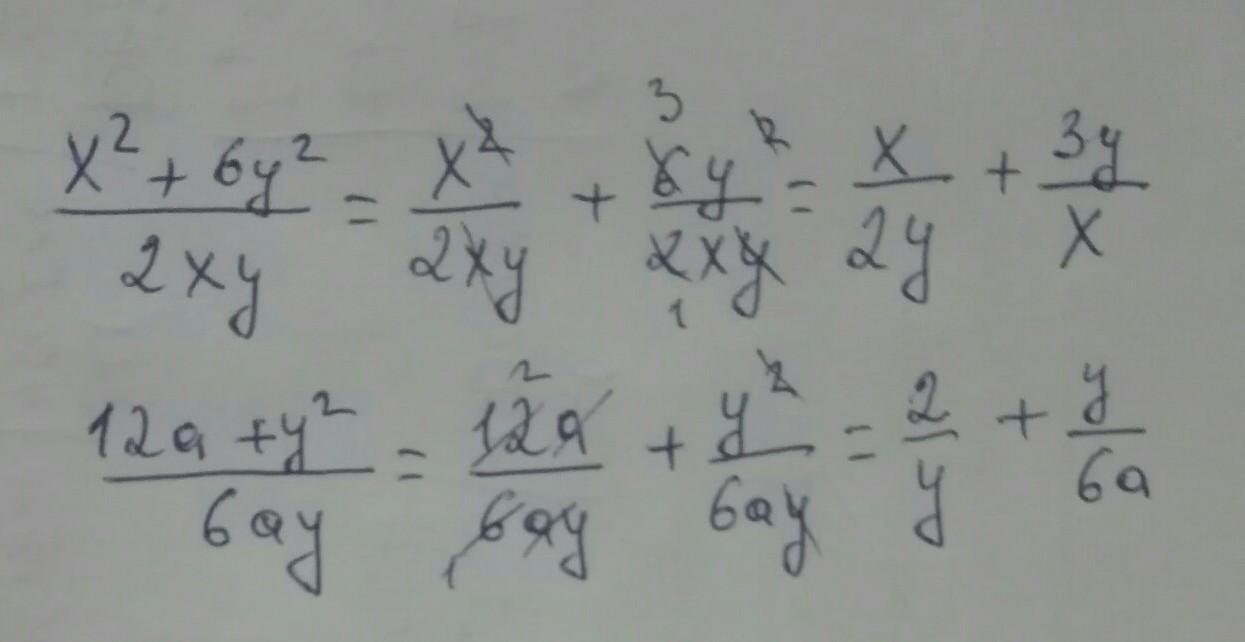 (x² + 6y²)/(2xy) = x²/(2xy) + (6y²)/(2xy) = x/(2y) + (3y)/x
(12a + y²)/(6ay) = (12a)/(6ay) + y²/(6ay) = 2/y + y/(6a)